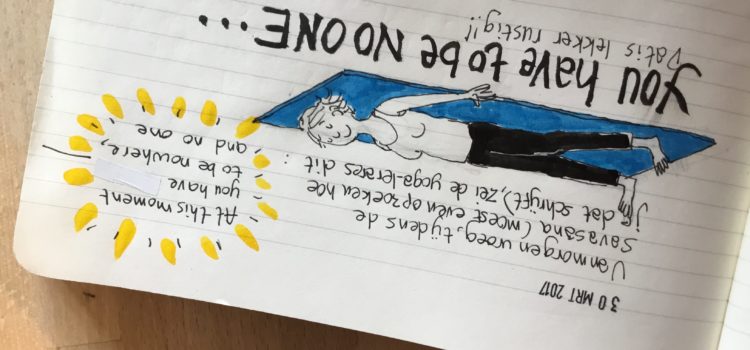 30 MRT 2017
Vanmorgen vroeg, tijdens de
Savasana (moest even opzoeken hoe
je dat schrijft), zei de yoga-lerares dit :
At this moment
you have
to be nowhere,
and no one
YOU have to be NO ONE...
Dat is lekker rustig!!